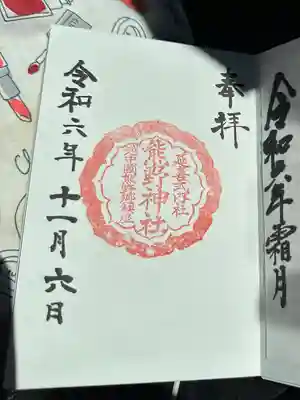 令和六年霜月
奉拝
延喜式内社
熊野神社
令和六年 十一月 六日